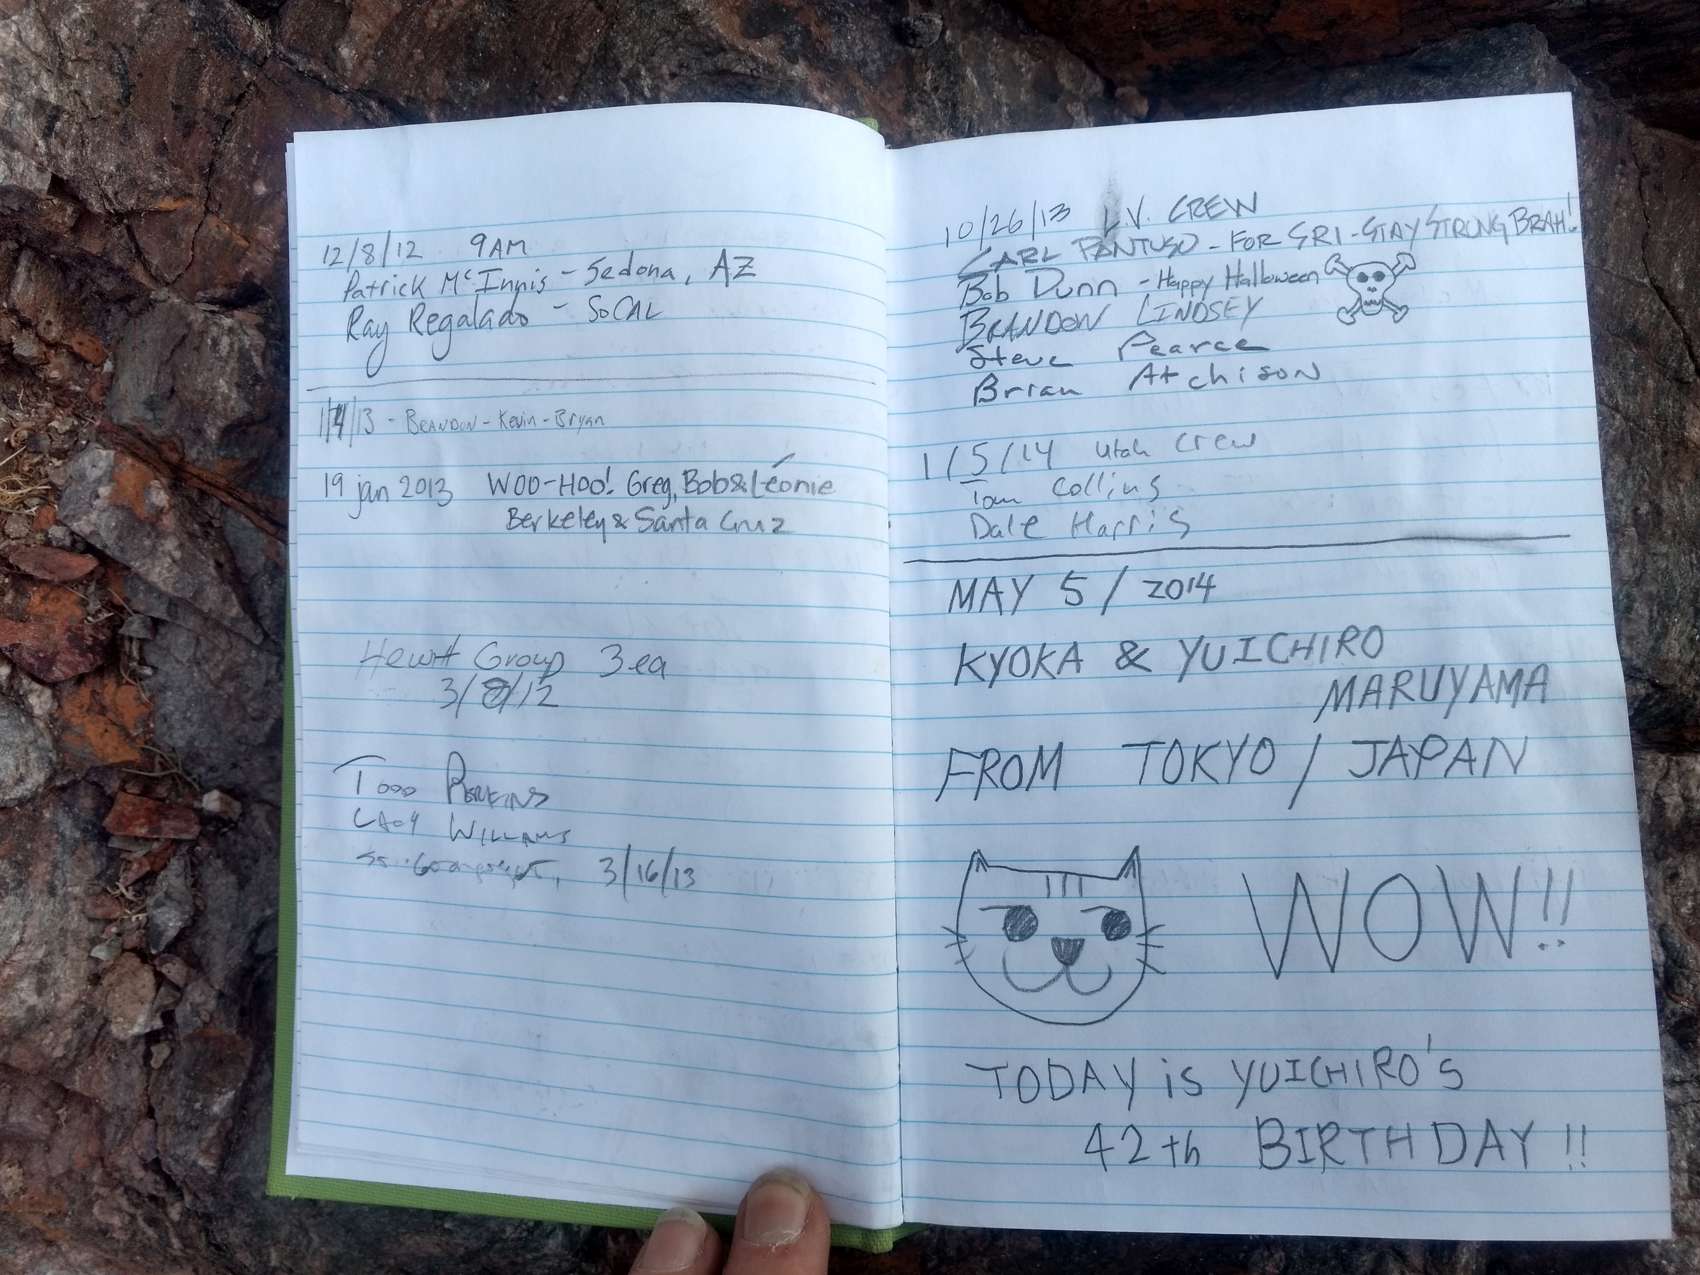 12/8/12 9AM
Patrick McInnis - Sedona, AZ
Ray Regalado - SoCAL
1/4/13 - BRANDON - Kevin - Bryan
19 jan 2013 WOO-HOO! Greg, Bob & Léonie
Berkeley & Santa Cruz
Group 3ea
3/8/12
TODD PERKINS
WILLIAMS
3/16/13
10/26/13 L.V. CREW
CARL PANTUSO - FOR SRI - STAY STRONG BRAH!
Bob Dunn - Happy Halloween
BRANDON LINDSEY
Steve Pearce
Brian Atchison
1/5/14 Utah Crew
Tom Collins
Dale Harris
MAY 5 / 2014
KYOKA & YUICHIRO
MARUYAMA
FROM TOKYO / JAPAN
WOW!!
TODAY is YUICHIRO's
42th BIRTHDAY!!